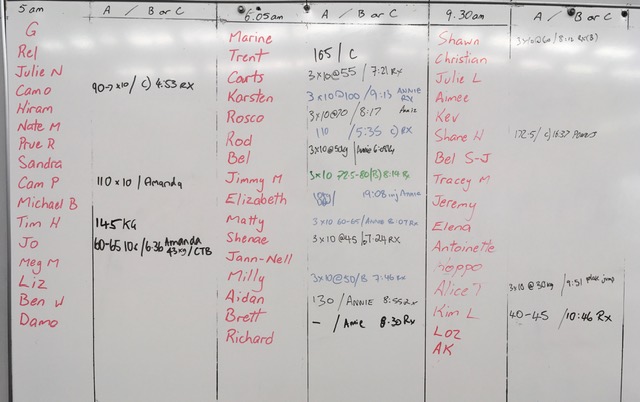 5am A / B or C 6.05am A / B or C 9.30am A / B or C
G
Rel
Julie N
Camo 90→x10/ C) 4:53 RX
Hiram
Nate M
Prue R
Sandra
Cam P 110 x 10 / Amanda
Michael B
Tim H 145 KG
Jo 60-65 10c / 6:36 Amanda 43kg / CTB
Meg M
Liz
Ben W
Damo
Marine
Trent 165 / C
Courts 3x10@55 / 7:21 RX
Karsten 3x10@100 / 9:13 ANNIE RX
Rosco 3x10@70 / 8:17 Annie
Rod 110 / 5:35 C) RX
Bel 3x10@50kg / Annie
Jimmy M 3x10 72.5-80/B) 8:19
Elizabeth 19:08 Annie
Matty 3x10 60-65/ANNIE 8:07 RX
Shenae 3x10@45 / 7:24 RX
Jann-Nell
Milly 3x10@50/B 7:46 RX
Aidan 130 / ANNIE 8:55 Rx
Brett - / Annie 8:30 Rx
Richard
Shawn 3x10@60 / 8:12 RX(B)
Christian
Julie L
Aimee
Kev
Shane N 172.5 / C) 16:37
Bel S-J
Tracey M
Jeremy
Elena
Antoinette
Hoppo
Alice T 3x10@30kg / 9:51 jump
Kim L 40-45 / 10:46 Rx
Loz
AK